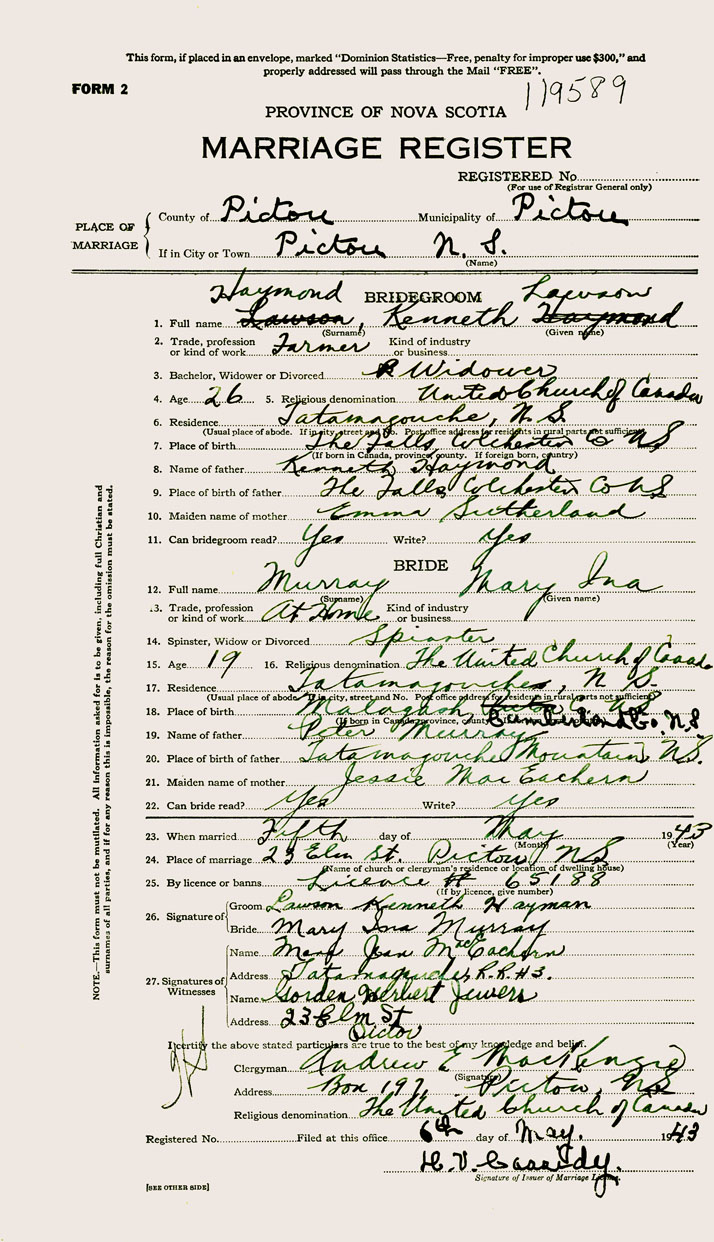 This form, if placed in an envelope, marked “Dominion Statistics—Free, penalty for improper use $300,” and
properly addressed will pass through the Mail “FREE”.
FORM 2
119589
PROVINCE OF NOVA SCOTIA
MARRIAGE REGISTER
REGISTERED No.
(For use of Registrar General only)
PLACE OF MARRIAGE
County of Pictou Municipality of Pictou
If in City or Town Pictou N. S.
(Name)
Haymond BRIDEGROOM Lawson
1. Full name Lawson, Kenneth Haymond
(Surname) (Given name)
2. Trade, profession or kind of work Farmer Kind of industry or business
3. Bachelor, Widower or Divorced Widower
4. Age 26 5. Religious denomination United Church of Canada
6. Residence Tatamagouche, N. S.
(Usual place of abode. If in city, street and No. Post office address for residents in rural parts not sufficient)
7. Place of birth The Falls, Colchester Co NS
(If born in Canada, province, county. If foreign born, country)
8. Name of father Kenneth Haymond
9. Place of birth of father The Falls Colchester Co NS
10. Maiden name of mother Emma Sutherland
11. Can bridegroom read? Yes Write? Yes
BRIDE
12. Full name Murray Mary Ina
(Surname) (Given name)
13. Trade, profession or kind of work At Home Kind of industry or business
14. Spinster, Widow or Divorced Spinster
15. Age 19 16. Religious denomination The United Church of Canada
17. Residence Tatamagouche, N S.
(Usual place of abode. If in city, street and No. Post office address for residents in rural parts not sufficient)
18. Place of birth Malagash Cumberland Co. N.S
(If born in Canada, province, county. If foreign born, country)
19. Name of father Peter Murray
20. Place of birth of father Tatamagouche Mountain, NS.
21. Maiden name of mother Jessie MacEachern
22. Can bride read? Yes Write? Yes
23. When married Fifth day of May 1943
(Month) (Year)
24. Place of marriage 23 Elm St. Pictou, NS
(Name of church or clergyman's residence or location of dwelling house)
25. By licence or banns Licence # 65188
(If by licence, give number)
26. Signature of
Groom Lawson Kenneth Hayman
Bride Mary Ina Murray
27. Signatures of Witnesses
Name Mary Jean MacEachern
Address Tatamagouche, R.R. #3.
Name Gorden Herbert Jewers
Address 23 Elm St
Pictou
I certify the above stated particulars are true to the best of my knowledge and belief.
Clergyman Andrew E MacKenzie
(Signature)
Address Box 197, Pictou, NS
Religious denomination The United Church of Canada
Registered No. Filed at this office 6th day of May. 1943
H. V. Cassidy.
Signature of Issuer of Marriage License.
[SEE OTHER SIDE]
NOTE.—This form must not be mutilated. All information asked for is to be given, including full Christian and
surnames of all parties, and if for any reason this is impossible, the reason for the omission must be stated.